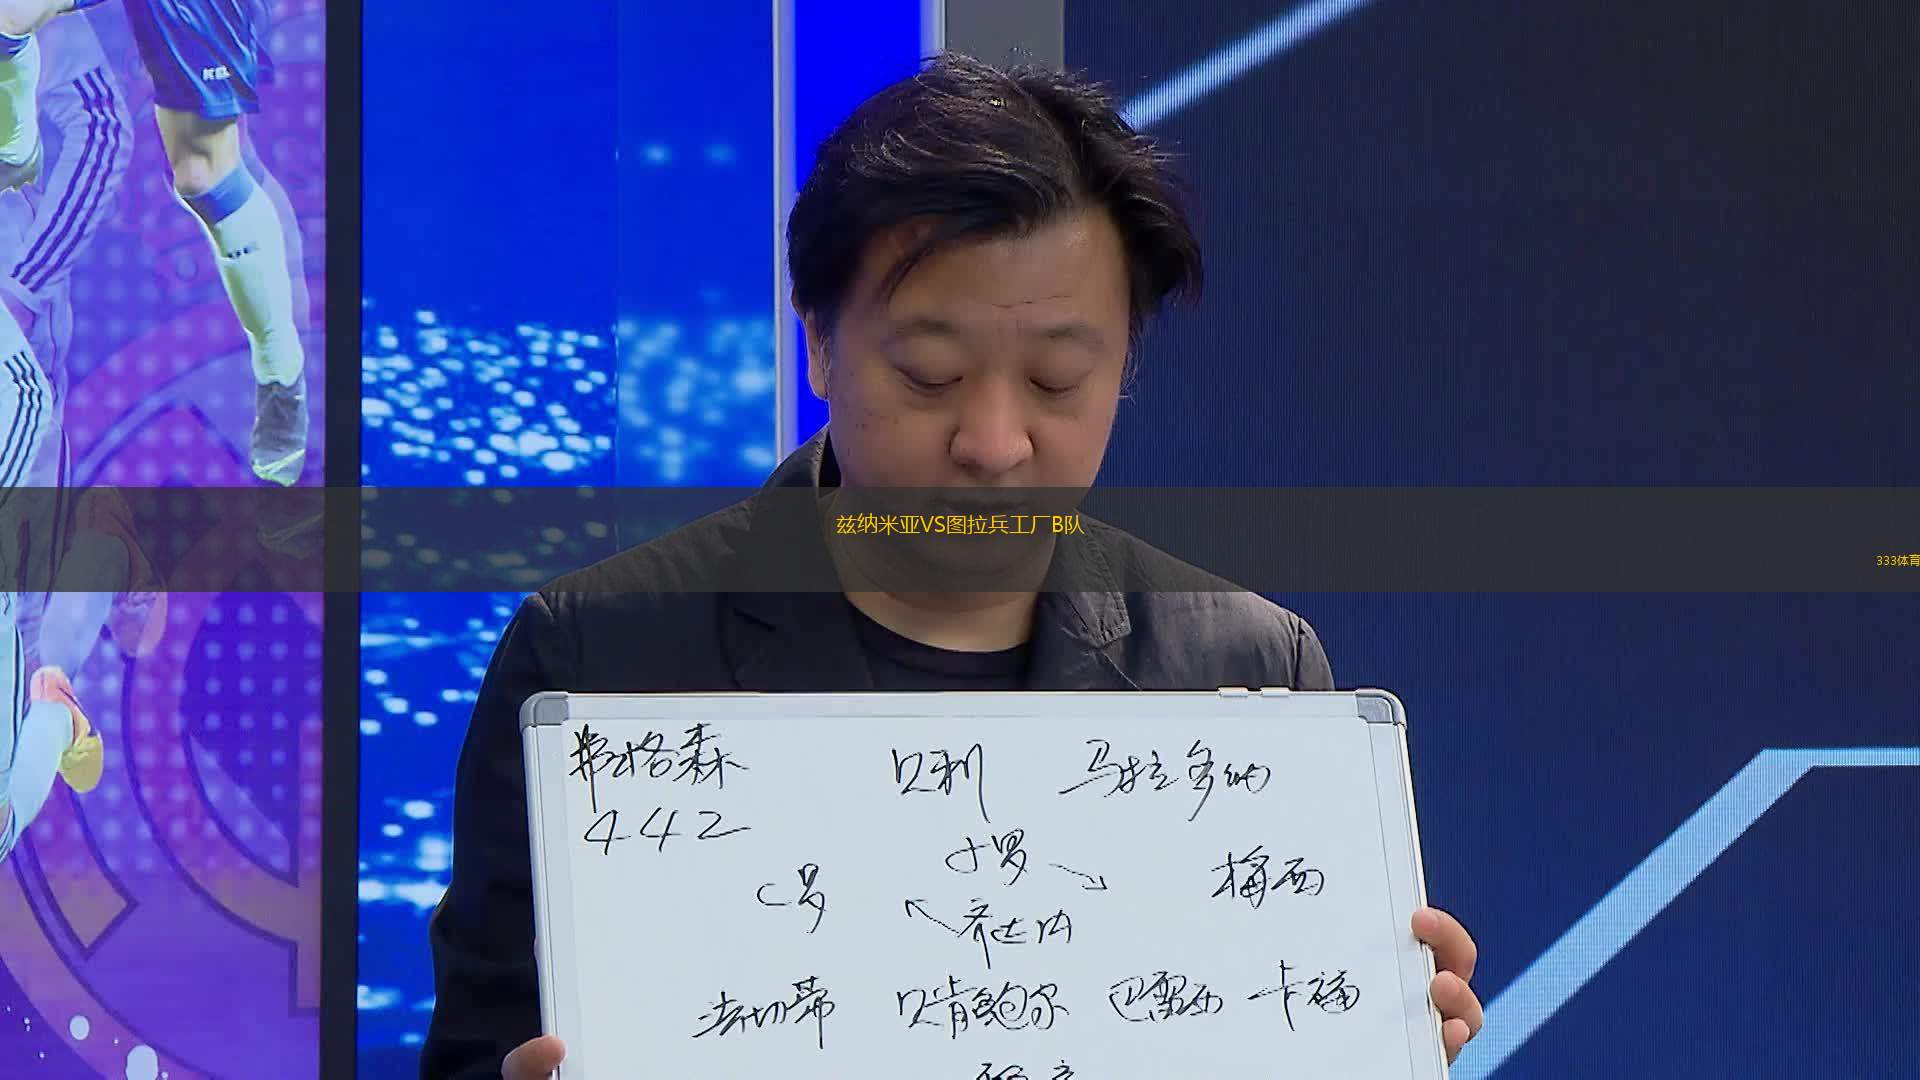 兹纳米亚VS图拉兵工厂B队
333体育
弗格森 贝利 马拉多纳
442
小罗
C罗 梅西
齐达内
法切蒂 贝肯鲍尔 巴雷西 卡福